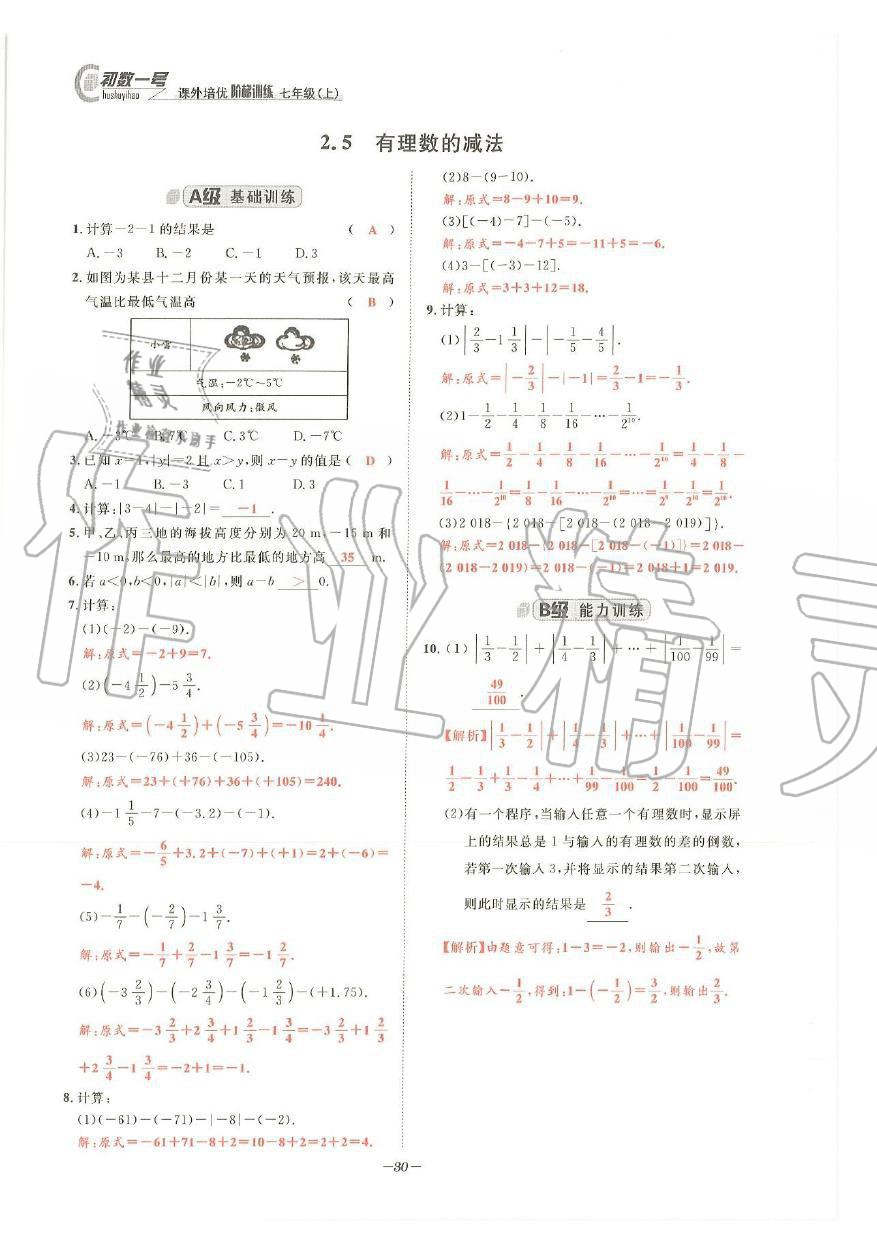 初数一号
hushuyihao
课外培优 阶梯训练 七年级(上)
2.5 有理数的减法
A级 基础训练
1.计算-2-1的结果是 ( A )
A.-3 B.-2 C.-1 D.3
2.如图为某县十二月份某一天的天气预报,该天最高
气温比最低气温高 ( B )
小雪
气温:-2℃~5℃
风向风力:微风
A.-3℃ B.7℃ C.3℃ D.-7℃
3.已知x=1,|y|=2且x>y,则x-y的值是( D )
A.-1 B.-3 C.1 D.3
4.计算:|3-4|-|-2|= -1 .
5.甲、乙、丙三地的海拔高度分别为20 m,-15 m和
-10 m,那么最高的地方比最低的地方高 35 m.
6.若a<0,b<0,|a|<|b|,则a-b > 0.
7.计算:
(1)(-2)-(-9).
解:原式=-2+9=7.
(2)(-4 1/2)-5 3/4.
解:原式=(-4 1/2)+(-5 3/4)=-10 1/4.
(3)23-(-76)+36-(-105).
解:原式=23+(+76)+36+(+105)=240.
(4)-1 1/5-7-(-3.2)-(-1).
解:原式=-6/5+3.2+(-7)+(+1)=2+(-6)=
-4.
(5)-1/7-(-2/7)-1 3/7.
解:原式=-1/7+2/7-1 3/7=-1 2/7.
(6)(-3 2/3)-(-2 3/4)-(-1 2/3)-(+1.75).
解:原式=-3 2/3+2 3/4+1 2/3-1 3/4=-3 2/3+1 2/3
+2 3/4-1 3/4=-2+1=-1.
8.计算:
(1)(-61)-(-71)-|-8|-(-2).
解:原式=-61+71-8+2=10-8+2=2+2=4.
(2)8-(9-10).
解:原式=8-9+10=9.
(3)[(-4)-7]-(-5).
解:原式=-4-7+5=-11+5=-6.
(4)3-[(-3)-12].
解:原式=3+3+12=18.
9.计算:
(1)|2/3-1 1/3|-|-1/5-4/5|.
解:原式=|-2/3|-|-1|=2/3-1=-1/3.
(2)1-1/2-1/4-1/8-1/16-…-1/2^10.
解:原式=1/2-1/4-1/8-1/16-…-1/2^10=1/4-1/8-
1/16-…-1/2^10=1/8-1/16-…-1/2^10=1/2^10.
(3)2 018-{2 018-[2 018-(2 018-2 019)]}.
解:原式=2 018-{2 018-[2 018-(-1)]}=2 018-
(2 018-2 019)=2 018-(-1)=2 018+1=2 019.
B级 能力训练
10.(1)|1/3-1/2|+|1/4-1/3|+…+|1/100-1/99|=
49/100 .
【解析】|1/3-1/2|+|1/4-1/3|+…+|1/100-1/99|=
1/2-1/3+1/3-1/4+…+1/99-1/100=1/2-1/100=49/100.
(2)有一个程序,当输入任意一个有理数时,显示屏
上的结果总是1与输入的有理数的差的倒数,
若第一次输入3,并将显示的结果第二次输入,
则此时显示的结果是 2/3 .
【解析】由题意可得:1-3=-2,则输出-1/2,故第
二次输入-1/2,得到:1-(-1/2)=3/2,则输出2/3.
-30-
作业精灵
作业
精灵